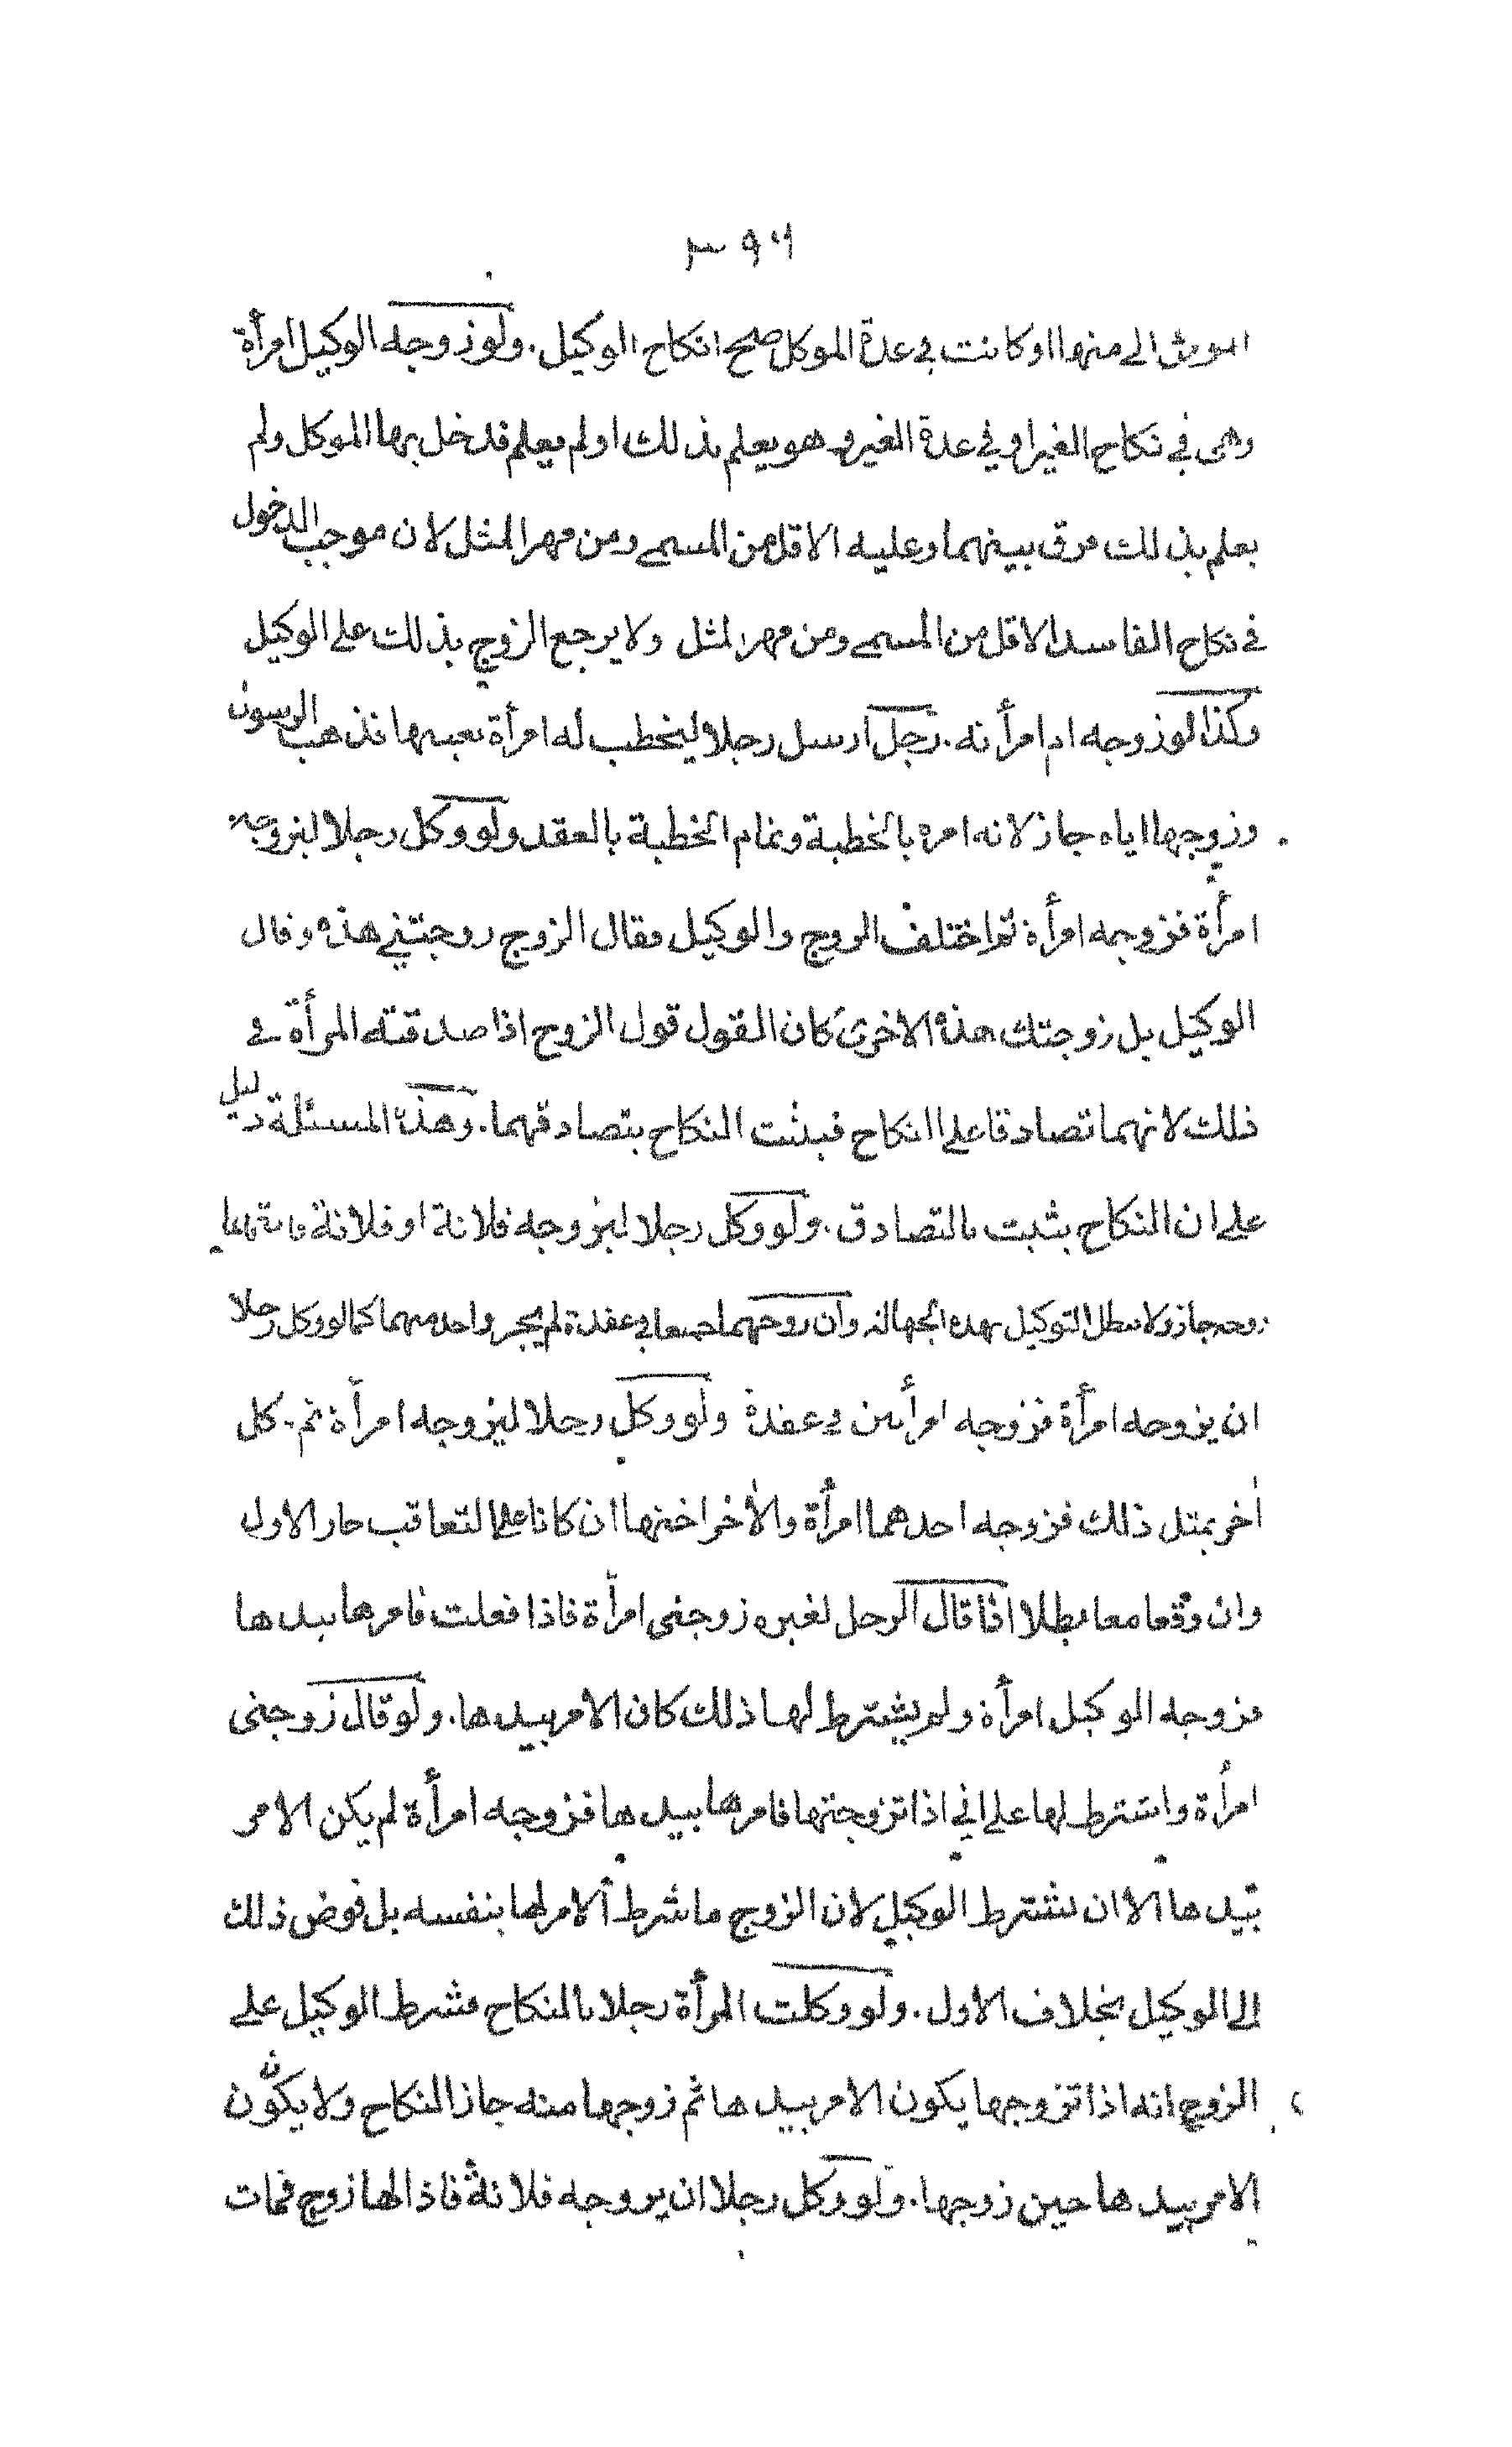 ٣٩٦
الى منها او كانت في عدة الموكل صح انكاح الوكيل. ولو زوجه الوكيل امرأة
وهى في نكاح الغير او في عدة الغير وهو يعلم بذلك او لم يعلم فدخل بها الموكل ولم
يعلم بذلك فرق بينهما وعليه الاقل من المسمى ومن مهر المثل لان موجب الدخول
في نكاح الفاسد الاقل من المسمى ومن مهر المثل ولا يرجع الزوج بذلك على الوكيل
وكذا لو زوجه ام امرأته. رجل ارسل رجلا ليخطب له امرأة بعينها فذهب الرسول
وزوجها اياه جاز لانه امره بالخطبة وتمام الخطبة بالعقد ولو وكل رجلا ليزوجه
امرأة فزوجه امرأة ثم اختلف الزوج والوكيل فقال الزوج زوجتني هذه وقال
الوكيل بل زوجتك هذه الاخرى كان القول قول الزوج اذا صدقته المرأة في
ذلك لانهما تصادقا على النكاح فيثبت النكاح بتصادقهما. وهذه المسئلة دليل
على ان النكاح يثبت بالتصادق. ولو وكل رجلا ليزوجه فلانة او فلانة فايتهما
زوجه جاز ولا يبطل التوكيل بهذه الجهالة وان زوجهما جميعا في عقدة لم يجز واحدة منهما كما لو وكل رجلا
ان يزوجه امرأة فزوجه امرأتين في عقدة ولو وكل رجلا ليزوجه امرأة ثم وكل
آخر بمثل ذلك فزوجه احدهما امرأة والآخر اختها ان كانا على التعاقب جاز الاول
وان وقعا معا بطلا اذا قال الرجل لغيره زوجنى امرأة فاذا فعلت فامرها بيدها
فزوجه الوكيل امرأة ولم يشترط لها ذلك كان الامر بيدها. ولو قال زوجنى
امرأة واشترط لها على اني اذا تزوجتها فامرها بيدها فزوجه امرأة لم يكن الامر
بيدها الا ان يشترط الوكيل لان الزوج ما شرط الامر لها بنفسه بل فوض ذلك
الى الوكيل بخلاف الاول. ولو وكلت المرأة رجلا بالنكاح فشرط الوكيل على
الزوج انه اذا تزوجها يكون الامر بيدها ثم زوجها منه جاز النكاح ولا يكون
الامر بيدها حين زوجها. ولو وكل رجلا ان يزوجه فلانة فاذا لها زوج فمات